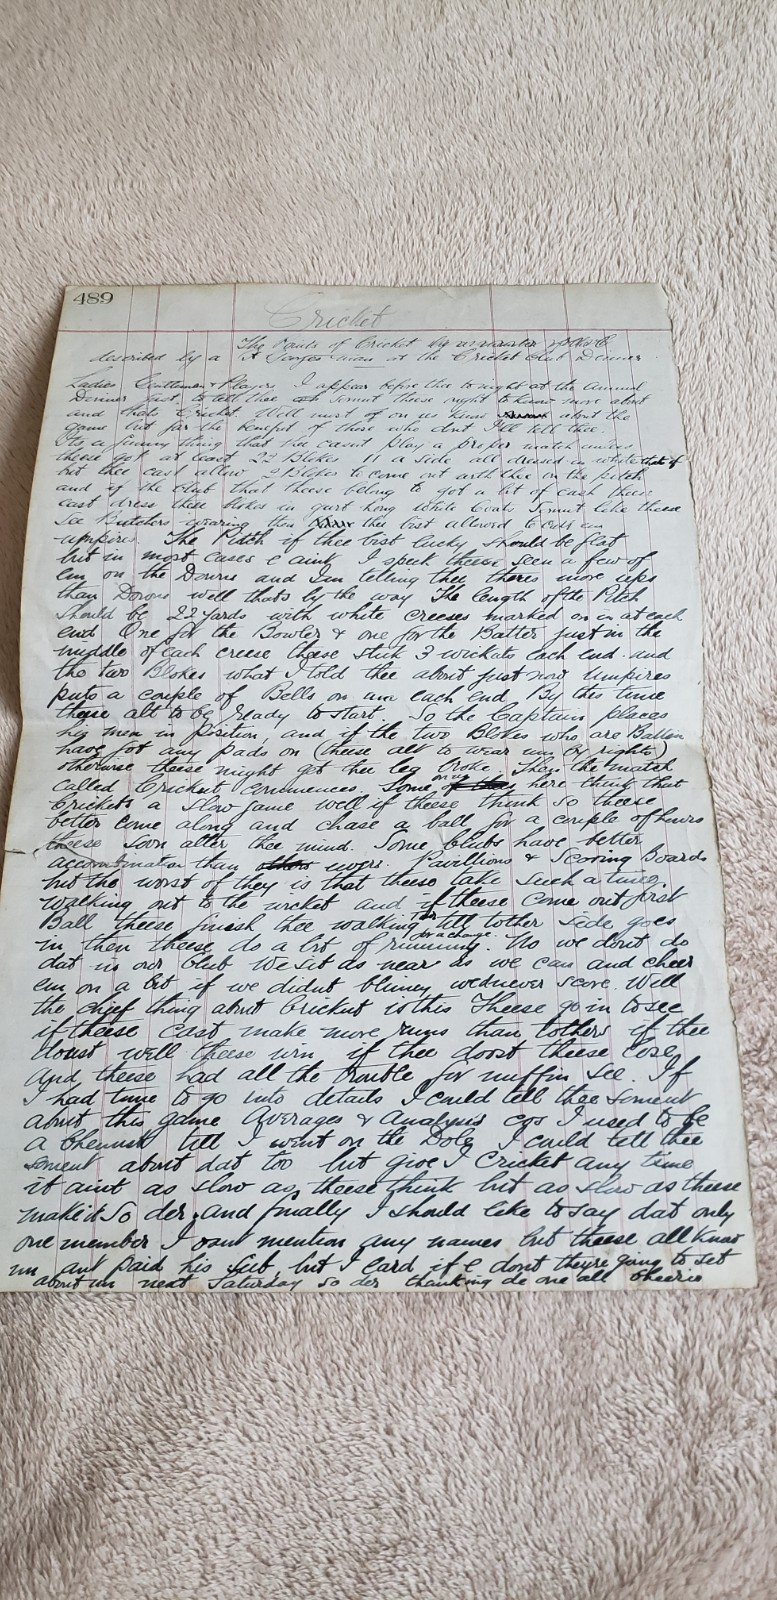 489
Cricket
The Rules of Cricket by
described by a St Georges man at the Cricket Club Dinner
Ladies Gentlemen & Players I appear before thee to night at the Annual
Dinner just to tell thee summt theese ought to know more about
and thats Cricket Well most of on us knows about the
game but for the benefit of those who dont I'll tell thee.
Its a funny thing that thee casnt play a proper match unless
theese got at least 22 Blokes 11 a side all dressed in white thats if
but thee cast allow 2 Blokes to come out with thee on the pitch
and if the club that theese belong to got a bit of cash theese
cast dress these blokes in gurt long white Coats Summut like theese
see Butchers wearing then thee bist allowed to call um
umpires. The Pitch if thee bist lucky should be flat
but in most cases e aint I speck theese seen a few of
em on the Downs and Im telling thee theres more ups
than Downs well thats by the way The length of the Pitch
should be 22 yards with white creeses marked on un at each
end One for the Bowler & one for the Batter just in the
middle of each creese theese stick 3 wickets each end. and
the two Blokes what I told thee about just now Umpires
puts a couple of Bells on um each end By this time
theese alt to be ready to start. So the Captain places
his men in position, and if the two Blokes who are Batten
have got any pads on (theese alt to wear um by rights)
otherwise theese might get thee leg broke. Then the match
called Cricket commences. Some on us here think that
Crickets a slow game well if theese think so theese
better come along and chase a ball for a couple of hours
theese soon alter thee mind. Some Clubs have better
accommodation than uvers. Pavillions & Scoring Boards
but the worst of they is that theese take such a time
walking out to the wicket and if theese come out first
Ball theese finish thee walking till tother side goes
in then theese do a bit of running for a change. No we dont do
dat in our Club We sit as near as we can and cheer
em on a bit if we didnt blimey wednever score. Well
the chief thing about Cricket is this Theese go in to see
if theese cast make more runs than tothers if thee
doust well theese win if thee doost theese lose
And theese had all the trouble for nuffin see. If
I had time to go into details I could tell thee sumut
about this game Averages & Analysis cos I used to be
a Chemist till I went on the Dole I could tell thee
sumut about dat too but give I Cricket any time
it aint as slow as theese think but as slow as theese
make it So der, and finally I should like to say dat only
one member I mention any names but theese all know
un ant paid his Sub, but I eard if e dont theyre going to set
about un next Saturday so der thanking de one all cheerio